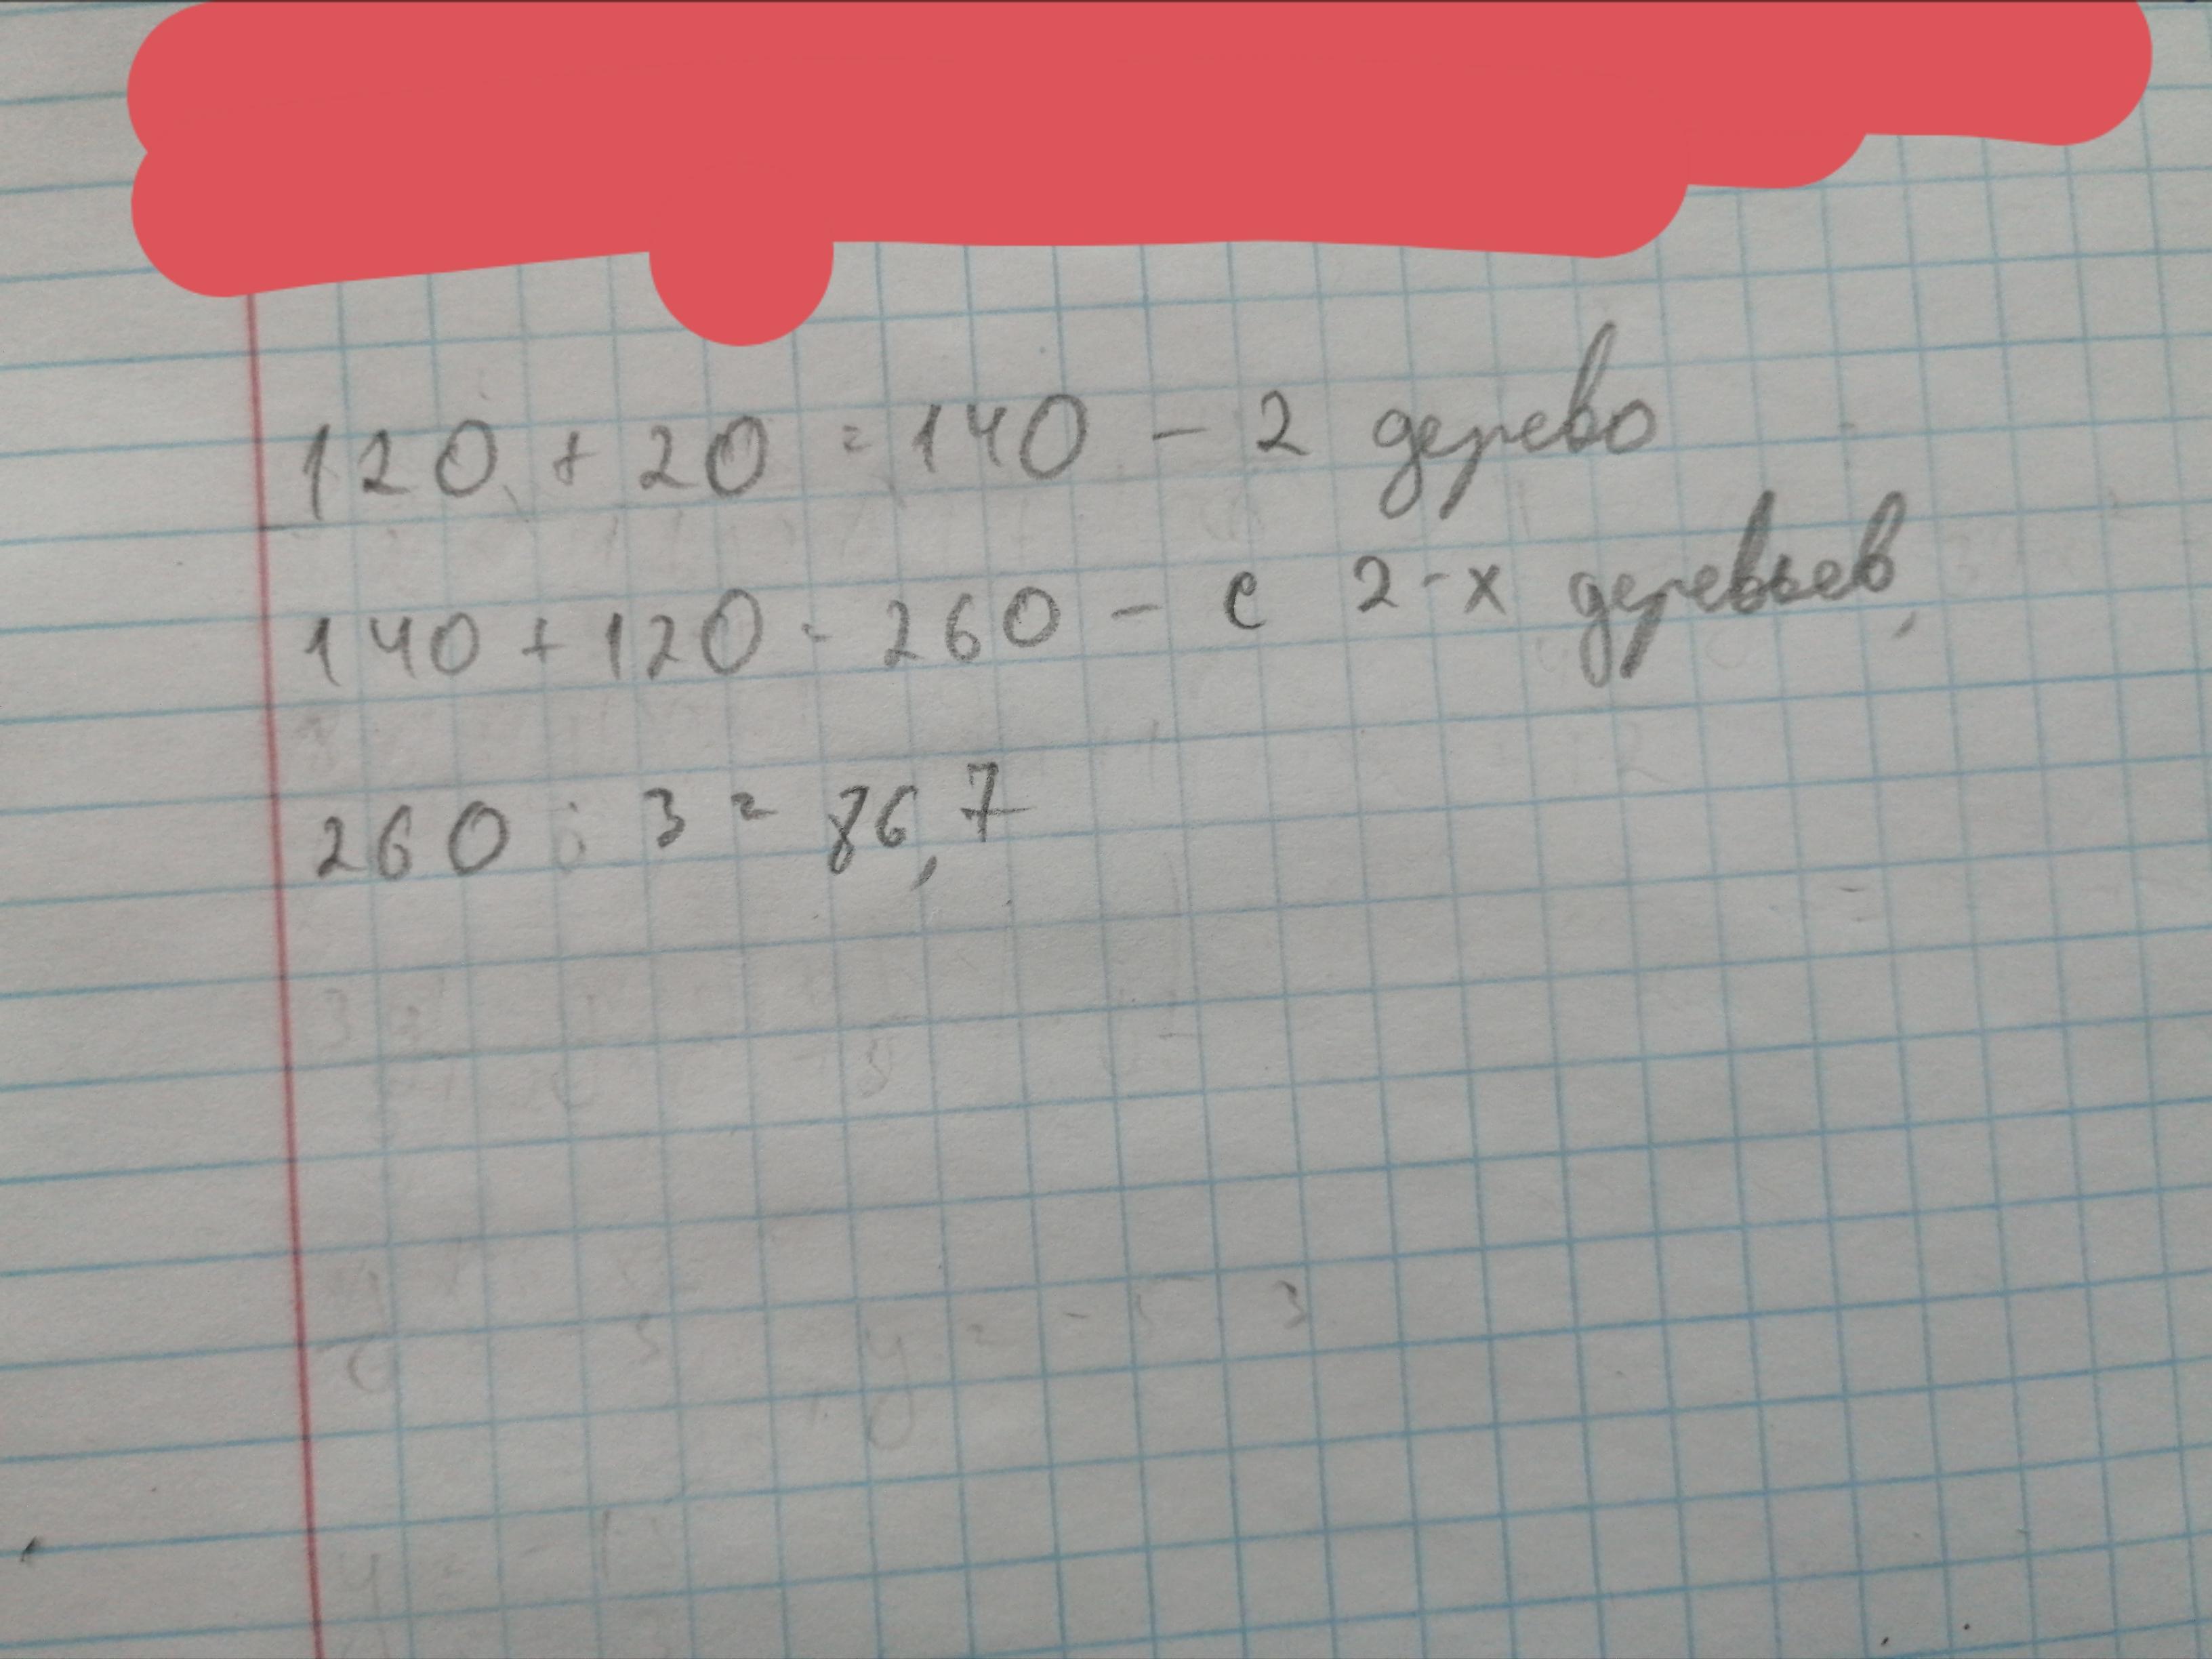 120 + 20 = 140 - 2 дерево
140 + 120 = 260 - с 2-х деревьев,
260 : 3 = 86,7